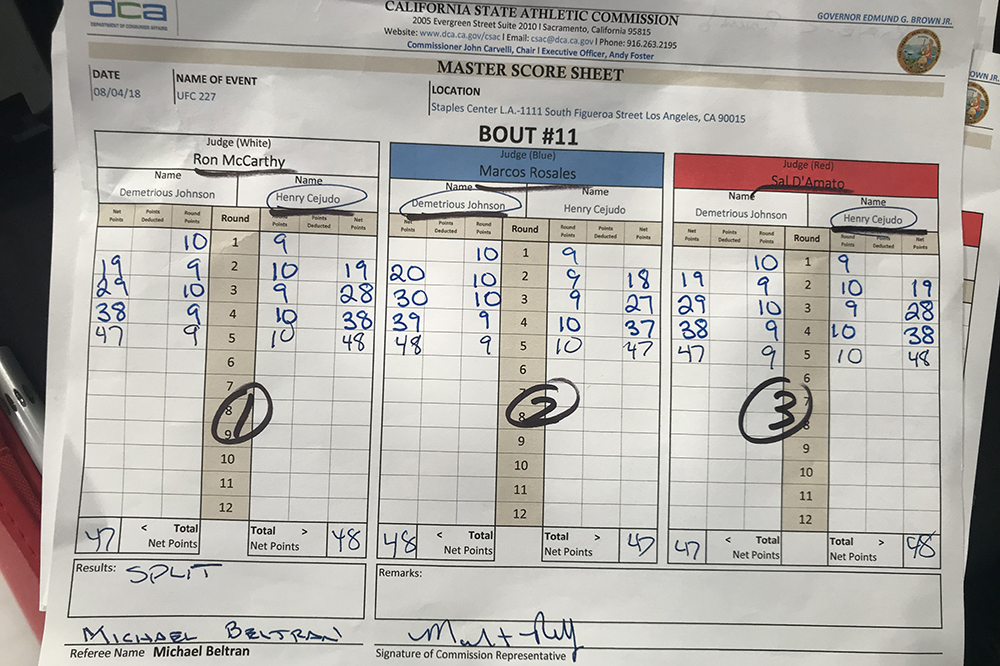 dca
DEPARTMENT OF CONSUMER AFFAIRS
CALIFORNIA STATE ATHLETIC COMMISSION
2005 Evergreen Street Suite 2010 I Sacramento, California 95815
Website: www.dca.ca.gov/csac I Email: csac@dca.ca.gov I Phone: 916.263.2195
Commissioner John Carvelli, Chair I Executive Officer, Andy Foster
GOVERNOR EDMUND G. BROWN JR.
OWN JR.
MASTER SCORE SHEET
DATE
08/04/18
NAME OF EVENT
UFC 227
LOCATION
Staples Center L.A.-1111 South Figueroa Street Los Angeles, CA 90015
BOUT #11
Judge (White)
Ron McCarthy
Name Name
Demetrious Johnson Henry Cejudo
Net Points Points Deducted Round Points Round Points Points Deducted Net Points
10 1 9
19 9 2 10 19
29 10 3 9 28
38 9 4 10 38
47 9 5 10 48
6
7
8
9
10
11
12
1
47 < Total Net Points Total > Net Points 48
Judge (Blue)
Marcos Rosales
Name Name
Demetrious Johnson Henry Cejudo
Net Points Points Deducted Round Points Round Round Points Points Deducted Net Points
10 1 9
20 10 2 9 18
30 10 3 9 27
39 9 4 10 37
48 9 5 10 47
6
7
8
9
10
11
12
2
48 < Total Net Points Total > Net Points 47
Judge (Red)
Sal D'Amato
Name Name
Demetrious Johnson Henry Cejudo
Net Points Points Deducted Round Points Round Round Points Points Deducted Net Points
10 1 9
19 9 2 10 19
29 10 3 9 28
38 9 4 10 38
47 9 5 10 48
6
7
8
9
10
11
12
3
47 < Total Net Points Total > Net Points 48
Results: SPLIT
Remarks:
MICHAEL BELTRAN
Referee Name Michael Beltran
Signature of Commission Representative